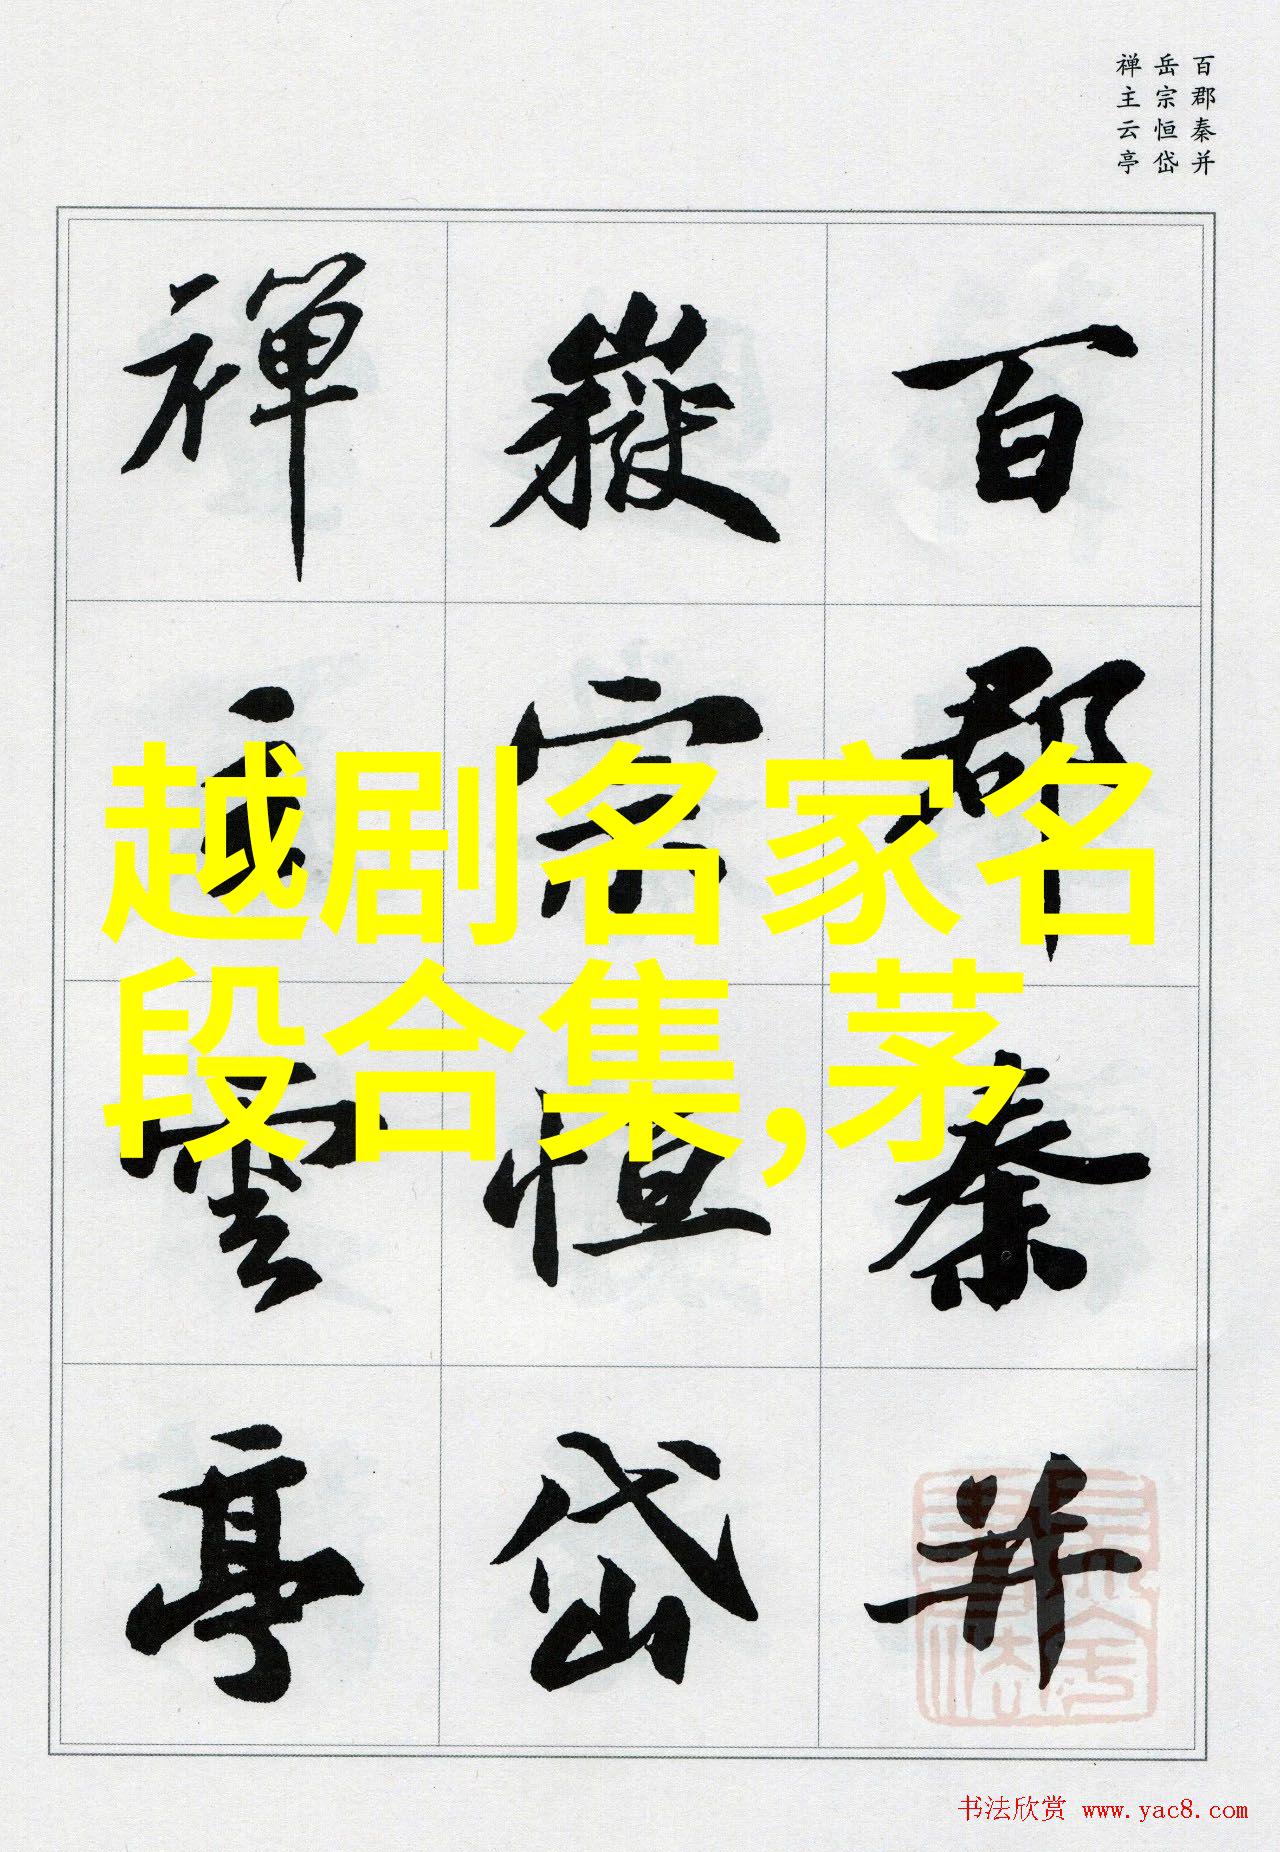 百郡秦并
岳宗恒岱
禅主云亭
百郡秦并
嶽宗恒岱
禪主雲亭
越剧名家名
段合集,茅
书法欣赏 www.yac8.com